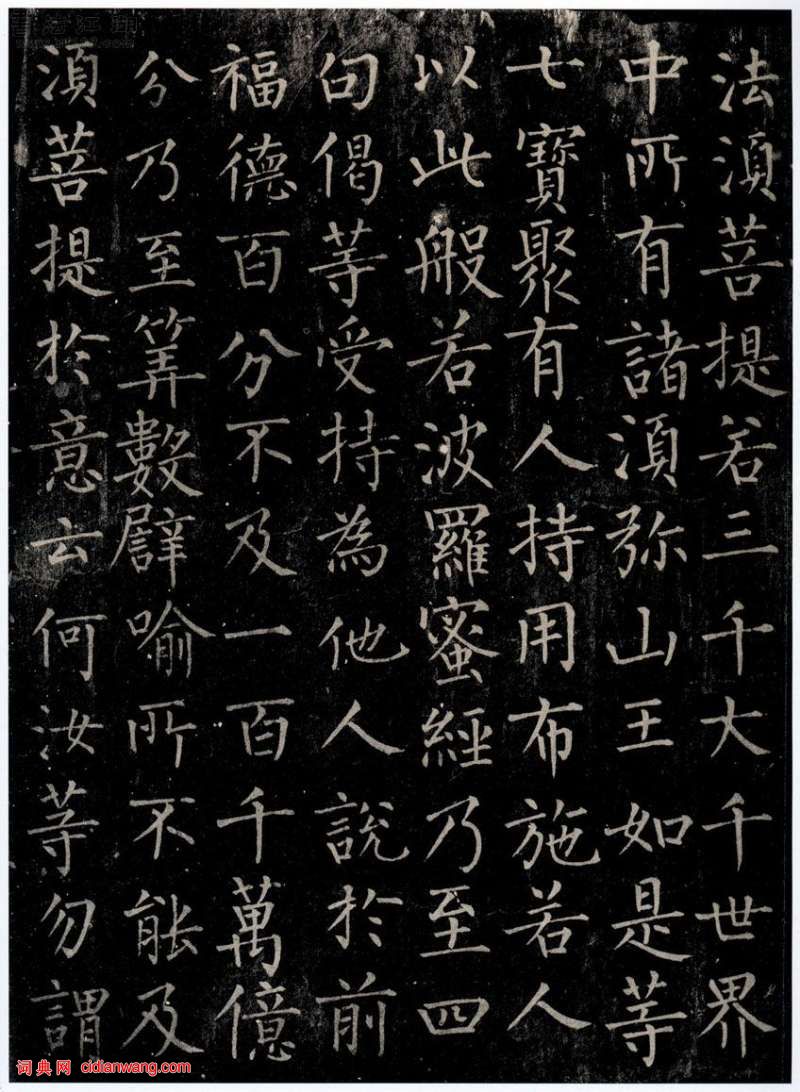 法須菩提若三千大千世界
中所有諸須弥山王如是等
七寶聚有人持用布施若人
以此般若波羅蜜經乃至四
句偈等受持為他人說於前
福德百分不及一百千萬億
分乃至筭數譬喻所不能及
須菩提於意云何汝等勿謂
词典网 cidianwang.com